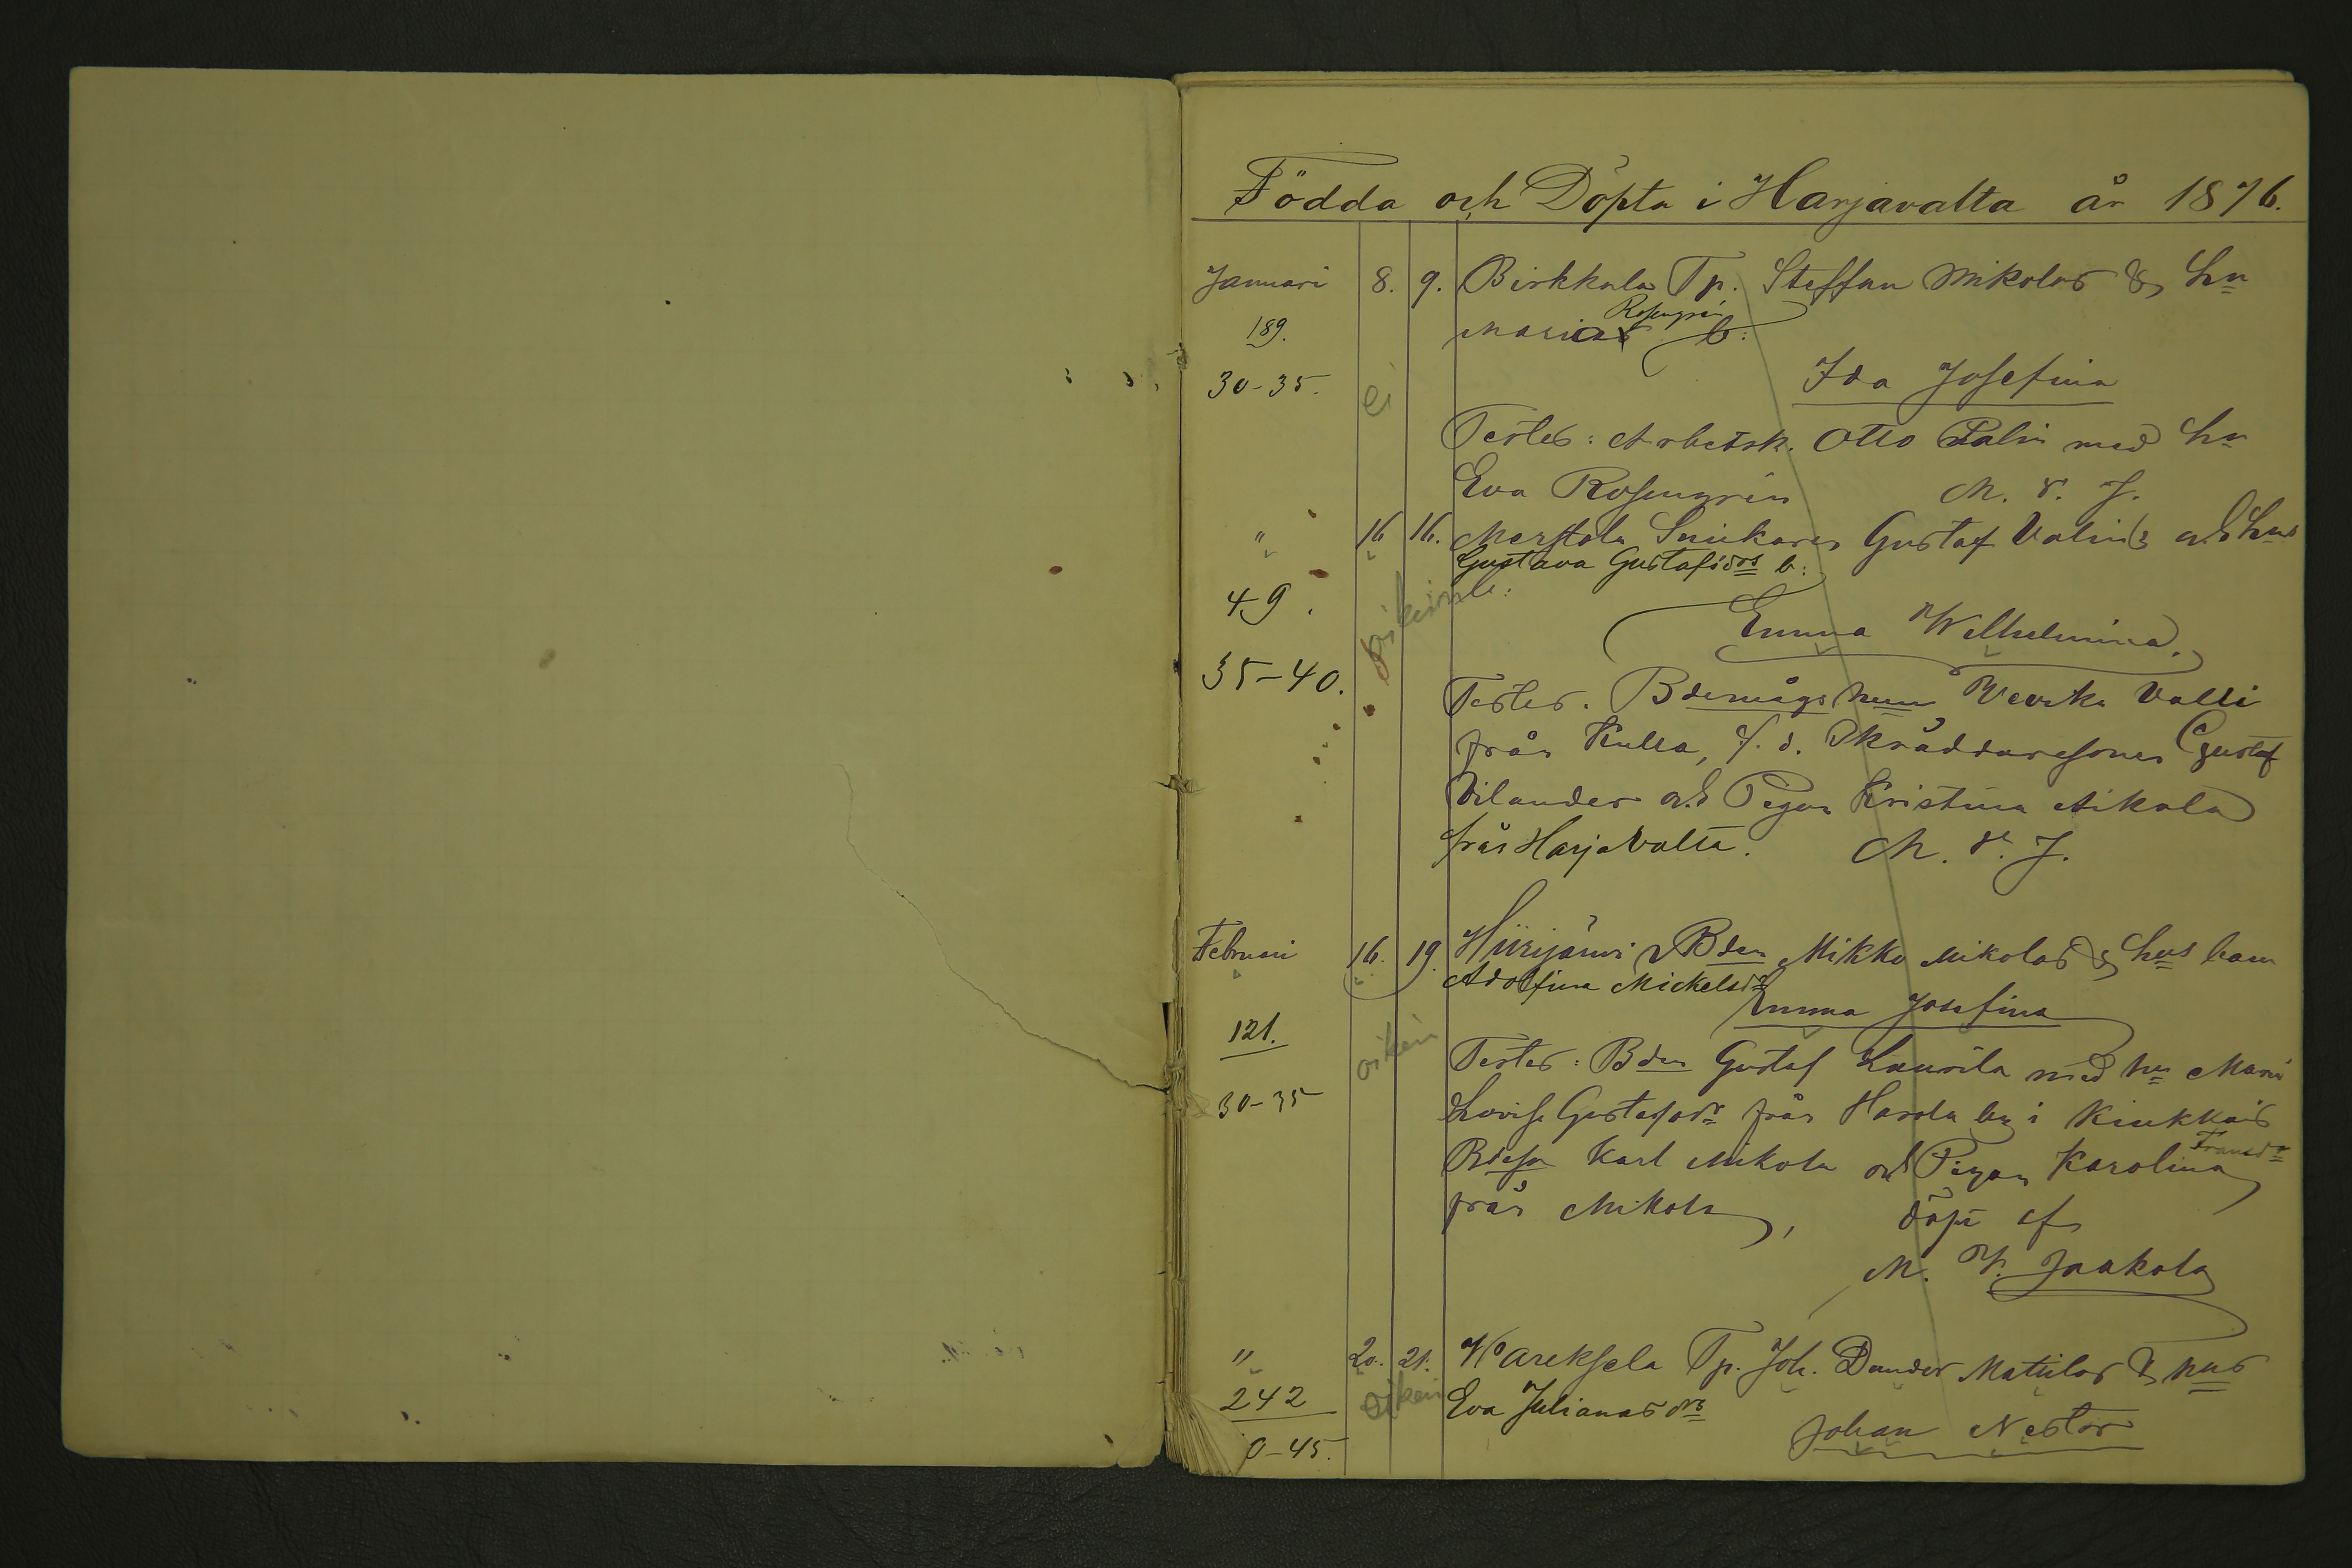 Födda och Döpta i Harjavalta år 1876.
Januari 8. 9. Birkkala Tp. Steffan Mikolas & hu
189. Rosengrén
Marias b:
30-35. ei Ida Josefina
Testes: Arbetsk. Otto Palin med hu
Eva Rosengrén M. V. J.
" 16 16. Merstola Snickaren Gustaf Valins och hus
Gustava Gustafsdrs b:
49. oikein
Emma Wilhelmina.
35-40.
Testes. Bdemågs hun Vevika Valli
från Kulla, f. d. Skräddaresonen Gustaf
Vilander och Pigan Kristina Mikola
från Harjavalta. M. V. J.
Februari 16. 19. Hiirijärvi Bden Mikko Mikolas & hus barn
Adolfina Mickelsdr
Emma Josefina
121. oikein
Testes: Bden Gustaf Laurila med hu Maria
30-35
Lovisa Gustafsdr från Harola by i Kiukkais
Bdeson Karl Mikola och Pigan Karolina Fransdr
från Mikola, döpt af
M. V. Jaakola
" 20. 21. Wareksela Tp. Joh. Dander Mattilas & hus
242 oikein Eva Julianas drs
Johan Nestor
0-45.